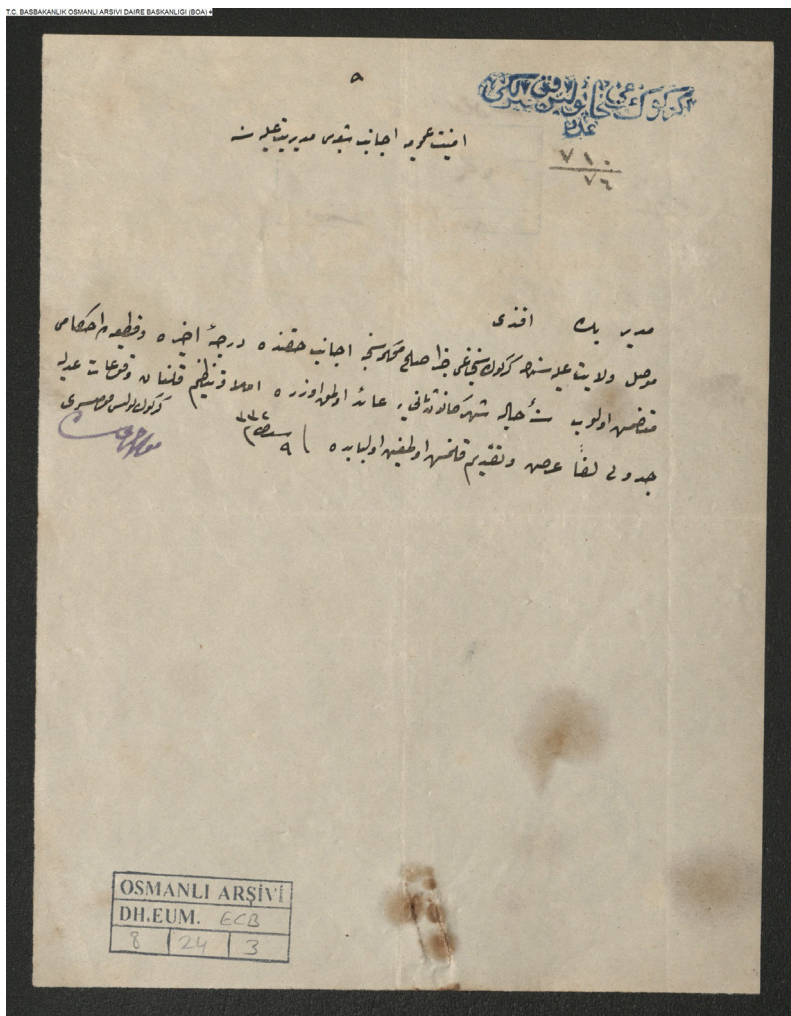 T.C. BASBAKANLIK OSMANLI ARSIVI DAIRE BASKANLIGI (BOA)
٥
كركوك سنجاغی پوليس قوميسرلكی
عدد
٧١٠
٧٦
امنيت عموميه اجانب شعبه‌سی مديريت عليه‌سنه
مدير بك افندی
موصل ولايت عليه‌سنه كركوك سنجاغی صلح محكمه‌سنجه اجانب حقنده درجهٔ اخيره و قطعيده احكامی
متضمن اولوب حاليه شهر كانون ثانی‌يه عائد اولمق اوزره املا و تنظيم قلنان وقوعات عدليه
جدولی لفاً عرض و تقديم قلنمش اولمغين اولبابده
٩ ٣٣٢
كركوك پوليس قوميسری
OSMANLI ARŞİVİ
DH.EUM. ECB
8 24 3